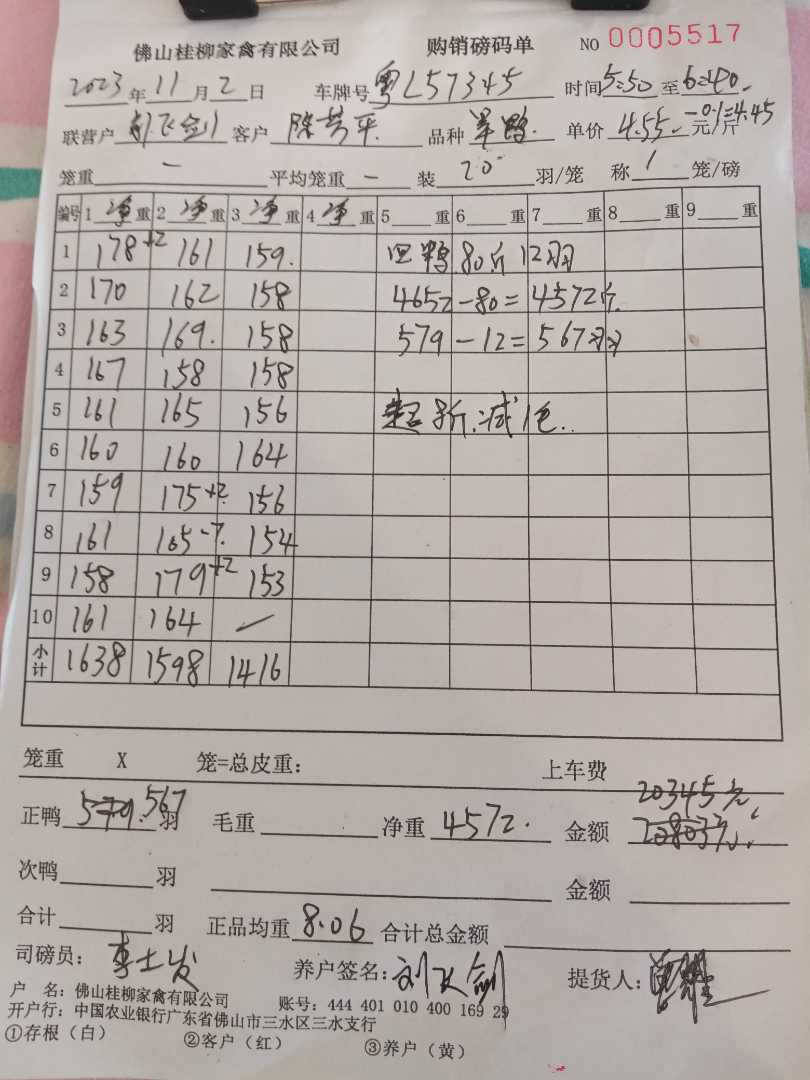 佛山桂柳家禽有限公司 购销磅码单 NO 0005517
2023年11月2日 车牌号粤L57345 时间5:50至6:40.
联营户 刘飞剑 客户 陈芳平 品种 单价 4.55 -0.1=4.45 元/斤
笼重 — 平均笼重 — 装 20 羽/笼 称 1 笼/磅
编号 1净重 2净重 3净重 4净重 5 重 6 重 7 重 8 重 9 重
1 178+2 161 159. 回鸭80斤12羽
2 170 162 158 4652-80=4572斤.
3 163 169. 158 579-12=567羽
4 167 158 158
5 161 165 156 超 减1毛..
6 160 160 164
7 159 175+2 156
8 161 165-7 154
9 158 179+2 153
10 161 164 —
小计 1638 1598 1416
笼重 X 笼=总皮重: 上车费
20345元
正鸭 579. 567 羽 毛重 净重 4572. 金额 20803元
次鸭 羽 金额
合计 羽 正品均重 8.06 合计总金额
司磅员: 李士发 养户签名: 刘飞剑 提货人:
户 名: 佛山桂柳家禽有限公司 账号: 444 401 010 400 169 29
开户行: 中国农业银行广东省佛山市三水区三水支行
①存根（白） ②客户（红） ③养户（黄）